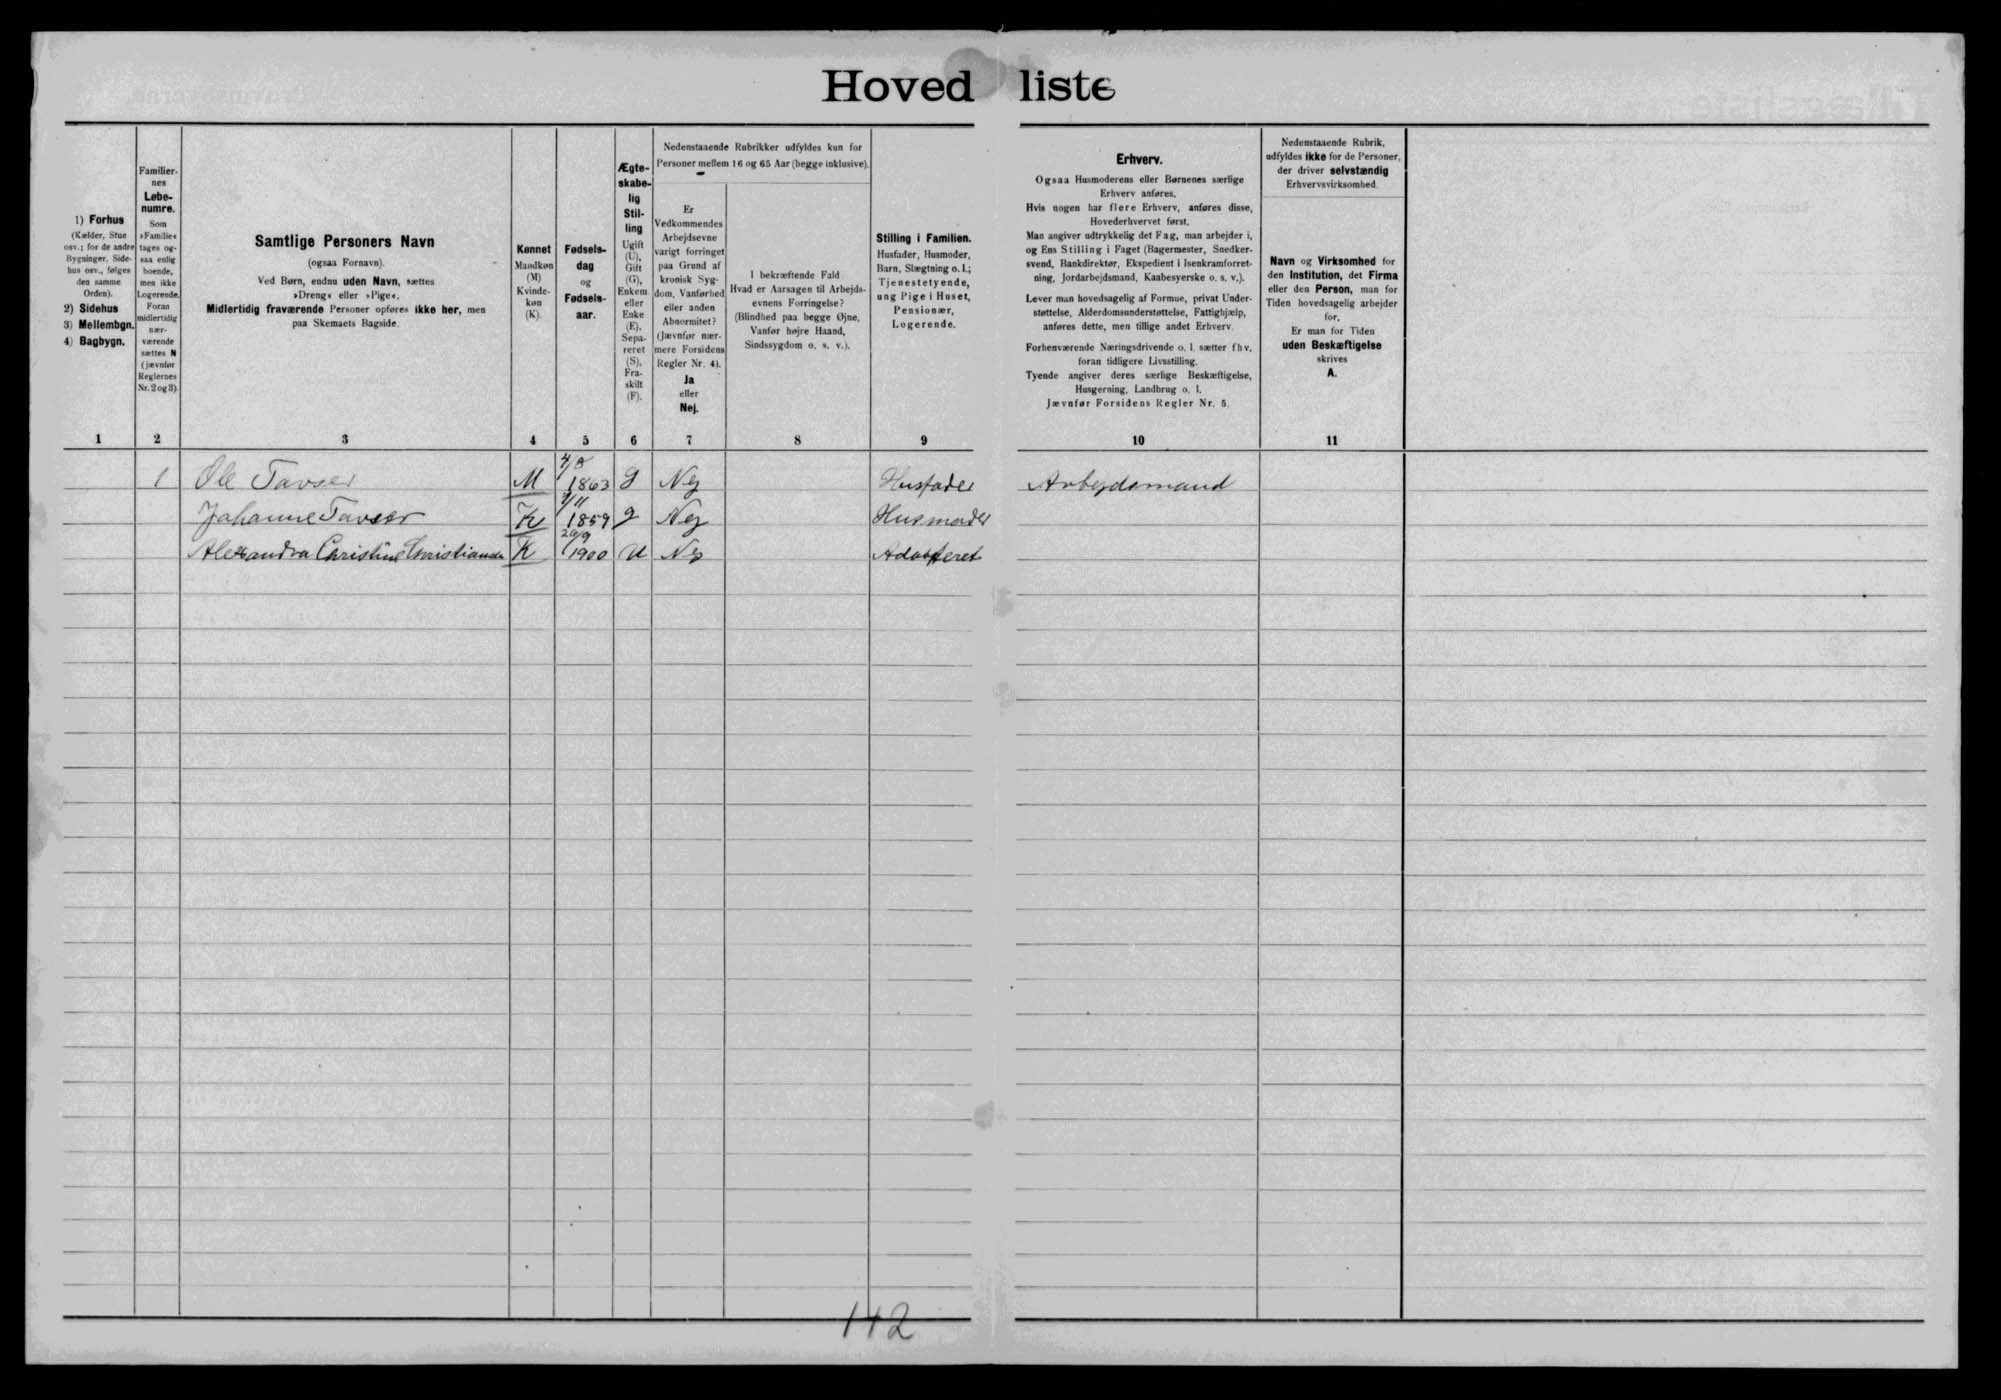 Hoved liste
1) Forhus
(Kælder, Stue
osv.; for de andre
Bygninger, Side-
hus osv., følges
den samme
Orden).
2) Sidehus
3) Mellembgn.
4) Bagbygn.
1
Familier-
nes
Løbe-
numre.
Som
»Familie«
tages og-
saa enlig
boende,
men ikke
Logerende.
Foran
midlertidig
nær-
værende
sættes N
(jævnfør
Reglernes
Nr. 2 og 3).
2
Samtlige Personers Navn
(ogsaa Fornavn).
Ved Børn, endnu uden Navn, sættes
»Dreng« eller »Pige«.
Midlertidig fraværende Personer opføres ikke her, men
paa Skemaets Bagside.
3
Kønnet
Mandkøn
(M)
Kvinde-
køn
(K).
4
Fødsels-
dag
og
Fødsels-
aar.
5
Ægte-
skabe-
lig
Stil-
ling
Ugift
(U),
Gift
(G),
Enkem.
eller
Enke
(E),
Sepa-
reret
(S),
Fra-
skilt
(F).
6
Nedenstaaende Rubrikker udfyldes kun for
Personer mellem 16 og 65 Aar (begge inklusive).
Er
Vedkommendes
Arbejdsevne
varigt forringet
paa Grund af
kronisk Syg-
dom, Vanførhed
eller anden
Abnormitet?
(Jævnfør nær-
mere Forsidens
Regler Nr. 4).
Ja
eller
Nej.
7
I bekræftende Fald
Hvad er Aarsagen til Arbejds-
evnens Forringelse?
(Blindhed paa begge Øjne,
Vanfør højre Haand,
Sindssygdom o. s. v.).
8
Stilling i Familien.
Husfader, Husmoder,
Barn, Slægtning o. l.;
Tjenestetyende,
ung Pige i Huset,
Pensionær,
Logerende.
9
Erhverv.
Ogsaa Husmoderens eller Børnenes særlige
Erhverv anføres.
Hvis nogen har flere Erhverv, anføres disse,
Hovederhvervet først.
Man angiver udtrykkelig det Fag, man arbejder i,
og Ens Stilling i Faget (Bagermester, Snedker-
svend, Bankdirektør, Ekspedient i Isenkramforret-
ning, Jordarbejdsmand, Kaabesyerske o. s. v.).
Lever man hovedsagelig af Formue, privat Under-
støttelse, Alderdomsunderstøttelse, Fattighjælp,
anføres dette, men tillige andet Erhverv.
Forhenværende Næringsdrivende o. l. sætter fhv.
foran tidligere Livsstilling.
Tyende angiver deres særlige Beskæftigelse,
Husgerning, Landbrug o. l.
Jævnfør Forsidens Regler Nr. 5.
10
Nedenstaaende Rubrik,
udfyldes ikke for de Personer,
der driver selvstændig
Erhvervsvirksomhed.
Navn og Virksomhed for
den Institution, det Firma
eller den Person, man for
Tiden hovedsagelig arbejder
for.
Er man for Tiden
uden Beskæftigelse
skrives
A.
11
1 Ole Tavser M 4/8 1863 G Nej Husfader Arbejdsmand
Johanne Tavser K 1/11 1859 g Nej Husmoder
Alexandra Christine K 20/9 1900 U Nej Adopteret
142